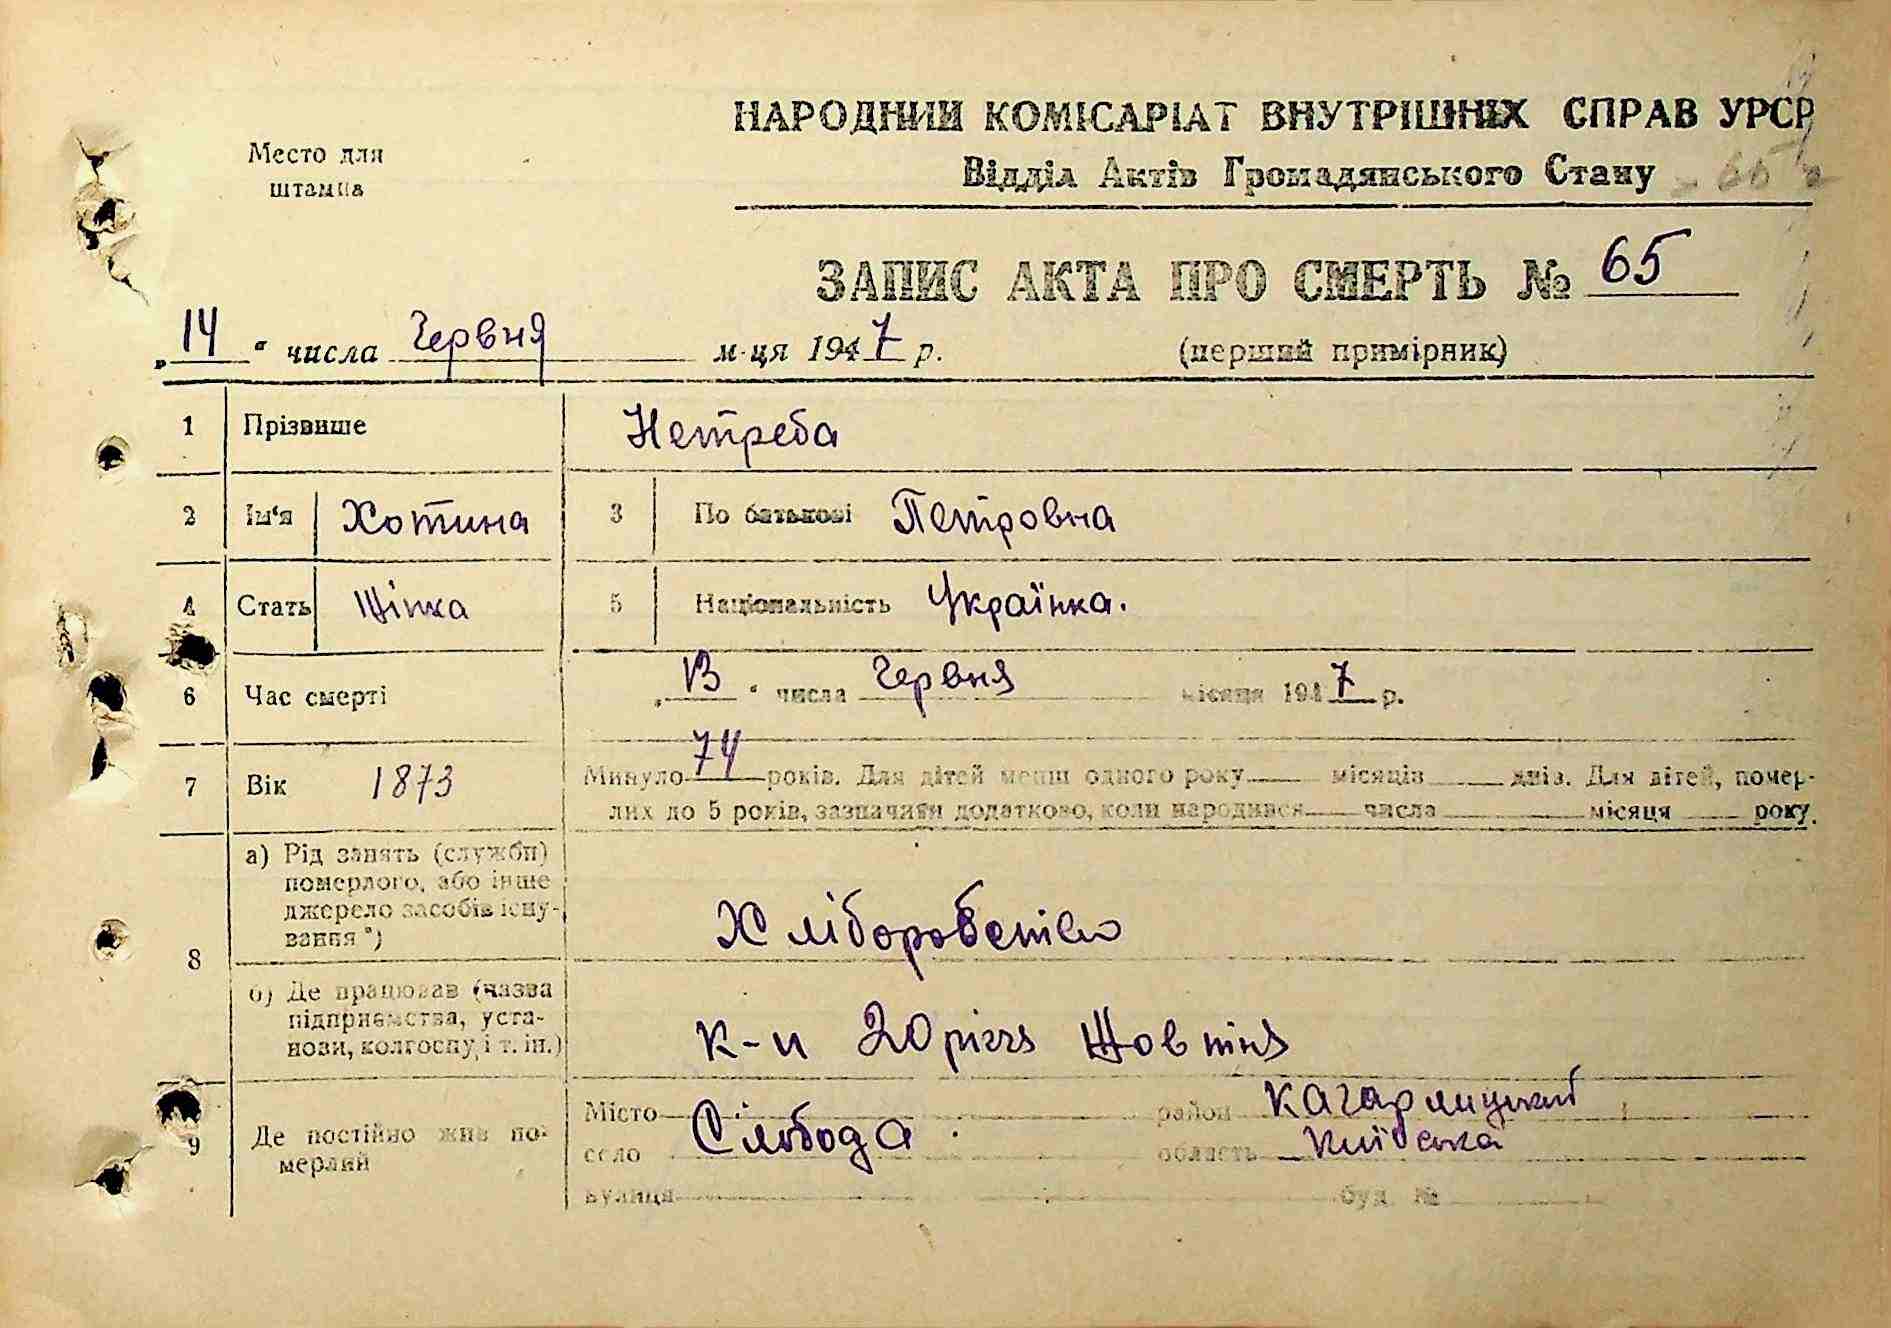 НАРОДНИЙ КОМІСАРІАТ ВНУТРІШНІХ СПРАВ УРСР
Відділ Актів Громадянського Стану
Место для
штампа
ЗАПИС АКТА ПРО СМЕРТЬ № 65
„14“ числа Червня м-ця 1947 р. (перший примірник)
1 Прізвише Нетреба
2 Ім‘я Хотина 3 По батькові Петровна
4 Стать Жінка 5 Національність Українка.
6 Час смерті „13“ числа Червня місяця 1947 р.
7 Вік 1873 Минуло 74 років. Для дітей менш одного року місяців днів. Для дітей, помер-
лих до 5 років, зазначити додатково, коли народився числа місяця року.
8 а) Рід занять (служби)
померлого, або інше
джерело засобів існу-
вання*)
Хліборобство
б) Де працював (назва
підприємства, уста-
нови, колгоспу і т. ін.)
К-п 20 річчя Жовтня
9 Де постійно жив по-
мерлий
Місто район Кагарлицький
село Слобода область Київська
вулиця буд. №